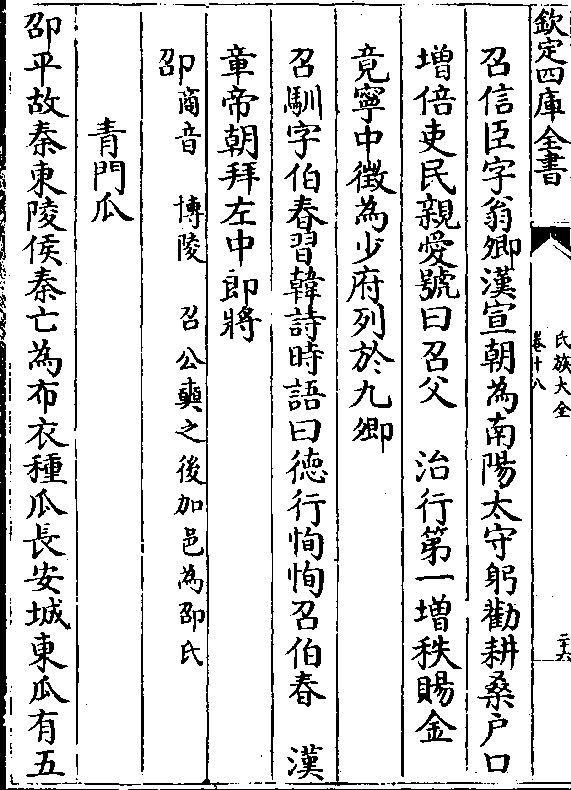 欽定四庫全書
氏族大全
卷十八
二十六
召信臣字翁卿漢宣朝為南陽太守躬勸耕桑户口
增倍吏民親愛號曰召父　治行第一增秩賜金
竟寧中徵為少府列於九卿
召馴字伯春習韓詩時語曰徳行恂恂召伯春　漢
章帝朝拜左中郎將
卲商音　博陵　召公奭之後加邑為卲氏
青門瓜
卲平故秦東陵侯秦亡為布衣種瓜長安城東瓜有五